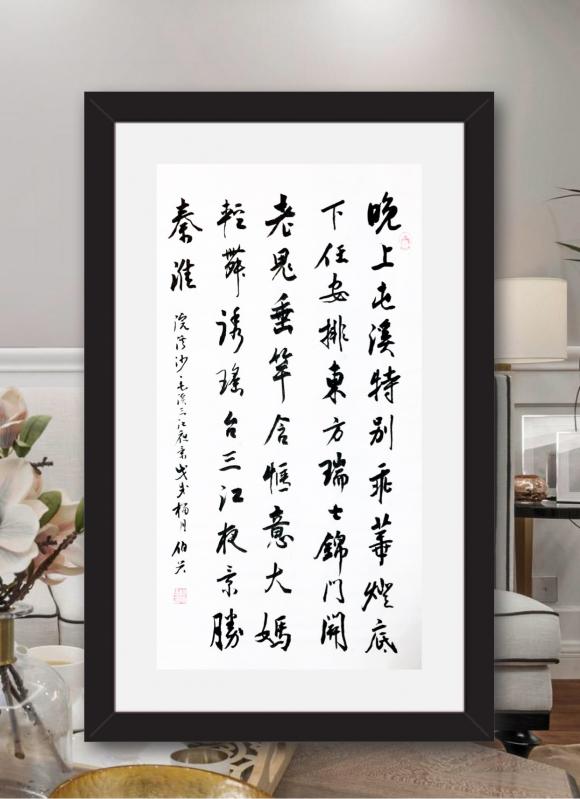 晚上屯溪特别乖華燈底
下任安排東方瑞士錦門開
老垂竿含惬意大媽
輕舞誘瑤台三江夜景勝
秦淮
浣溪沙·屯溪三江夜景戊戌月伯兴